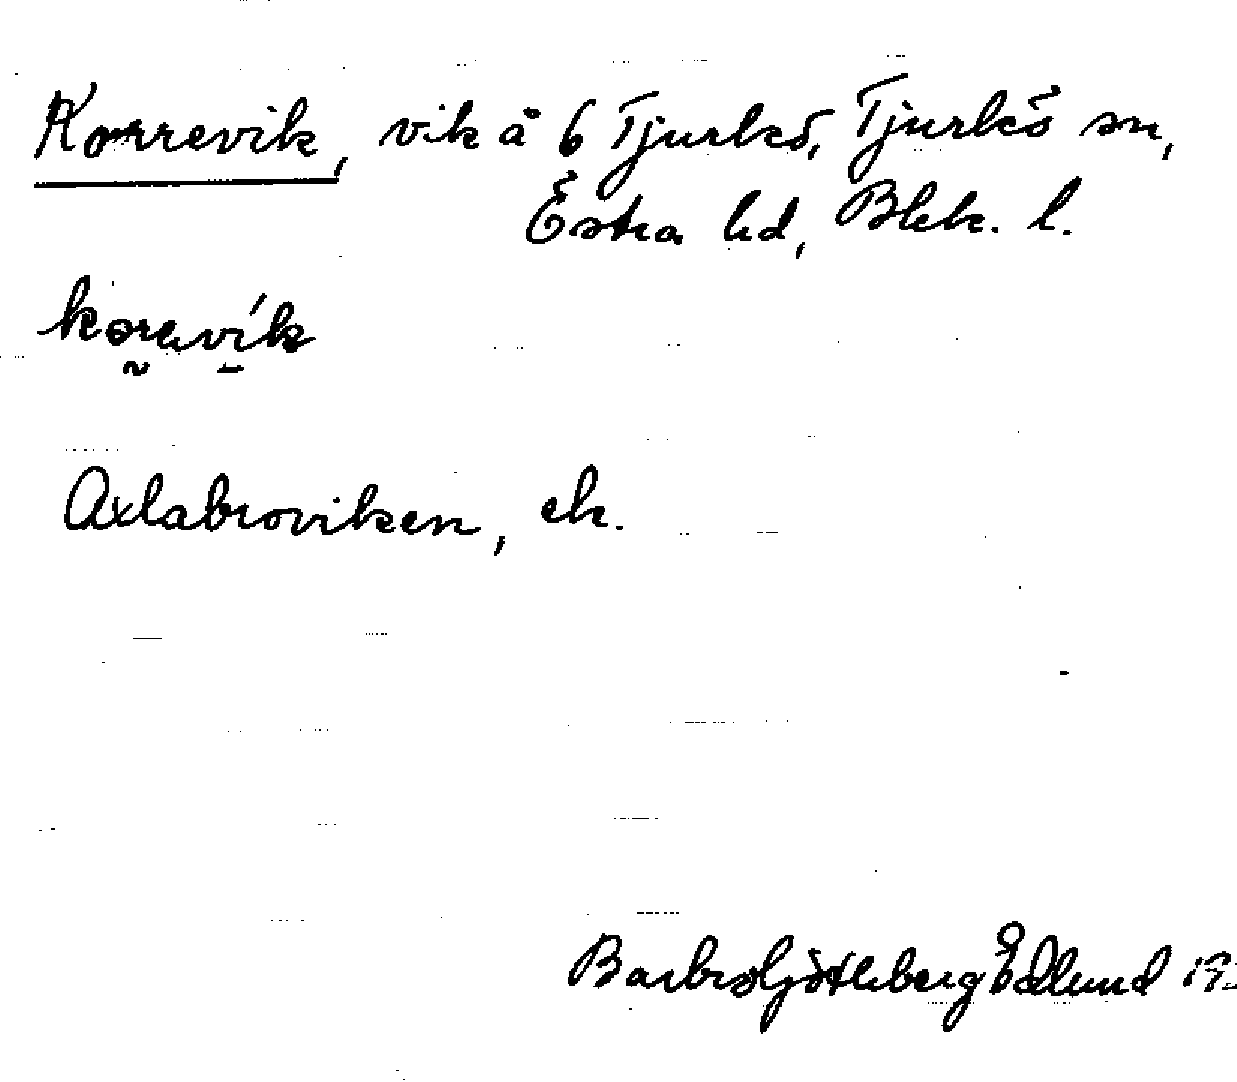 Korrevik, vik å 6 Tjurkö, Tjurkö sn,
Östra hd, Blek. l.
koravik
Axlabroviken, ek.
Edlund 19